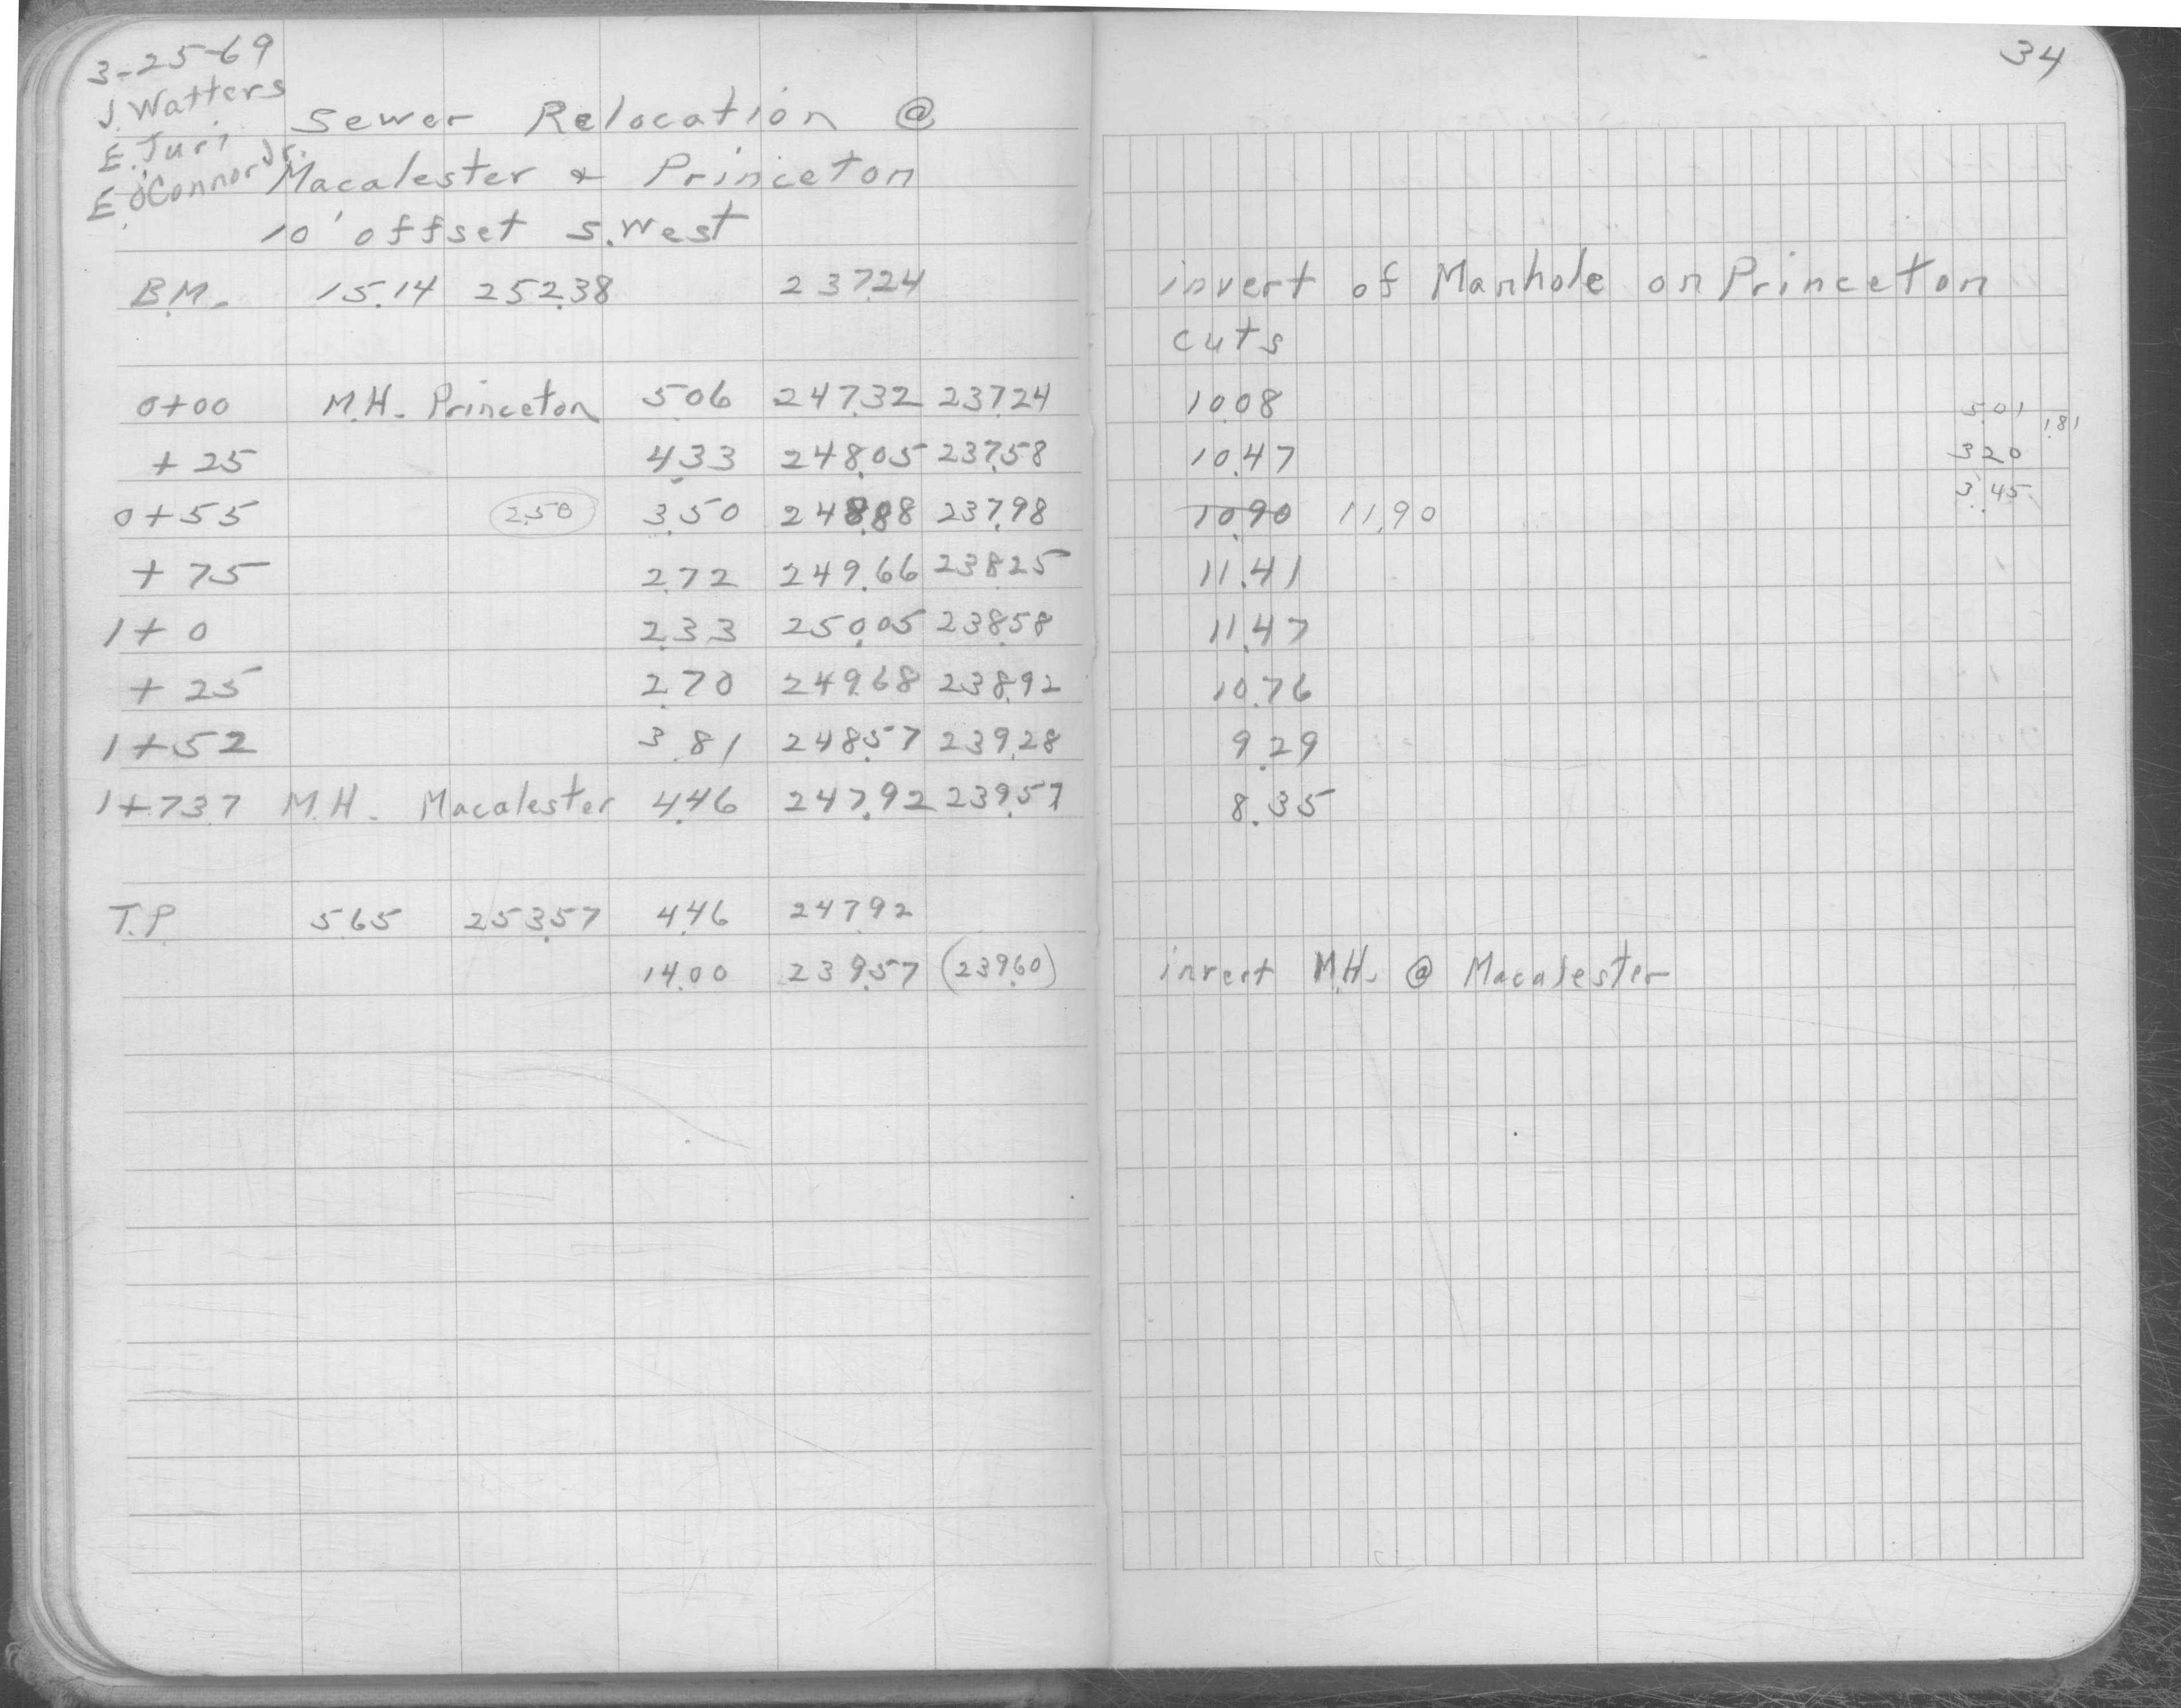 34
3-25-69
J. Watters
E. Juri
E. O'Connor Jr.
Sewer Relocation @
Macalester & Princeton
10' offset S.West
B.M. 15.14 252.38 237.24 invert of Manhole on Princeton
cuts
0+00 M.H. Princeton 5.06 247.32 237.24 10.08 5.01
1.81
+25 4.33 248.05 237.58 10.47 3.20
0+55 2.50 3.50 248.88 237.98 10.90 11.90 3.45
+75 2.72 249.66 238.25 11.41
1+0 2.33 250.05 238.58 11.47
+25 2.70 249.68 238.92 10.76
1+52 3.81 248.57 239.28 9.29
1+73.7 M.H. Macalester 4.46 247.92 239.57 8.35
T.P. 5.65 253.57 4.46 247.92
14.00 239.57 (239.60) invert M.H. @ Macalester